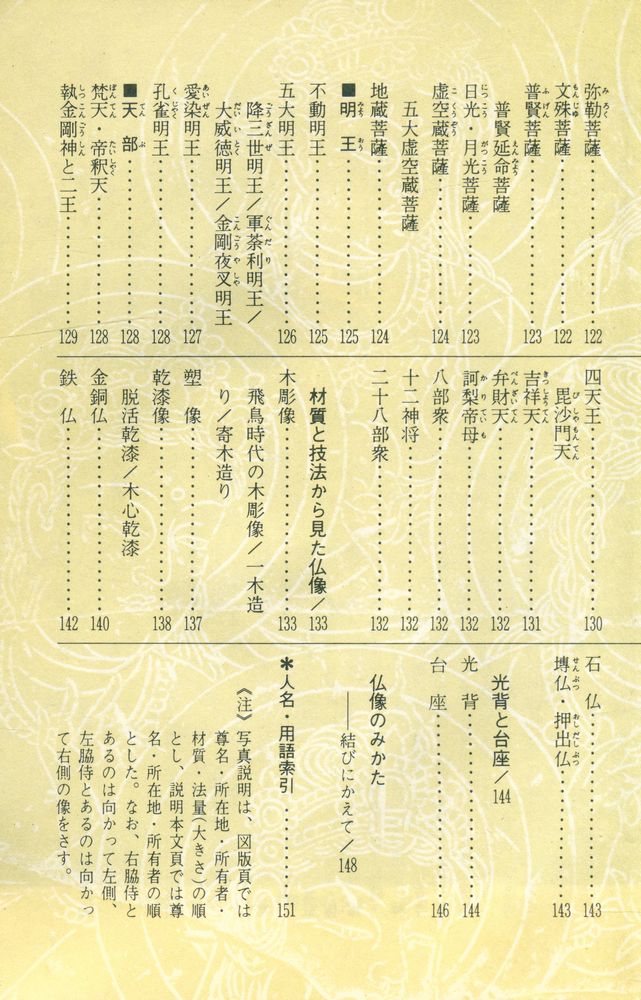 弥勒菩薩……122
文殊菩薩……122
普賢菩薩……123
普賢延命菩薩
日光・月光菩薩……123
虚空蔵菩薩……124
五大虚空蔵菩薩
地蔵菩薩……124
■明王……125
不動明王……125
五大明王……126
降三世明王／軍荼利明王／
大威徳明王／金剛夜叉明王
愛染明王……127
孔雀明王……128
■天部……128
梵天・帝釈天……128
執金剛神と二王……129
四天王……130
毘沙門天
吉祥天……131
弁財天……132
訶梨帝母……132
八部衆……132
十二神将……132
二十八部衆……132
材質と技法から見た仏像／133
木彫像……133
飛鳥時代の木彫像／一木造
り／寄木造り
塑像……137
乾漆像……138
脱活乾漆／木心乾漆
金銅仏……140
鉄仏……142
石仏……143
塼仏・押出仏……143
光背と台座／144
光背……144
台座……146
仏像のみかた
――結びにかえて／148
＊人名・用語索引……151
《注》写真説明は、図版頁では
尊名・所在地・所有者・
材質・法量(大きさ)の順
とし、説明本文頁では尊
名・所在地・所有者の順
とした。なお、右脇侍と
あるのは向かって左側、
左脇侍とあるのは向かっ
て右側の像をさす。